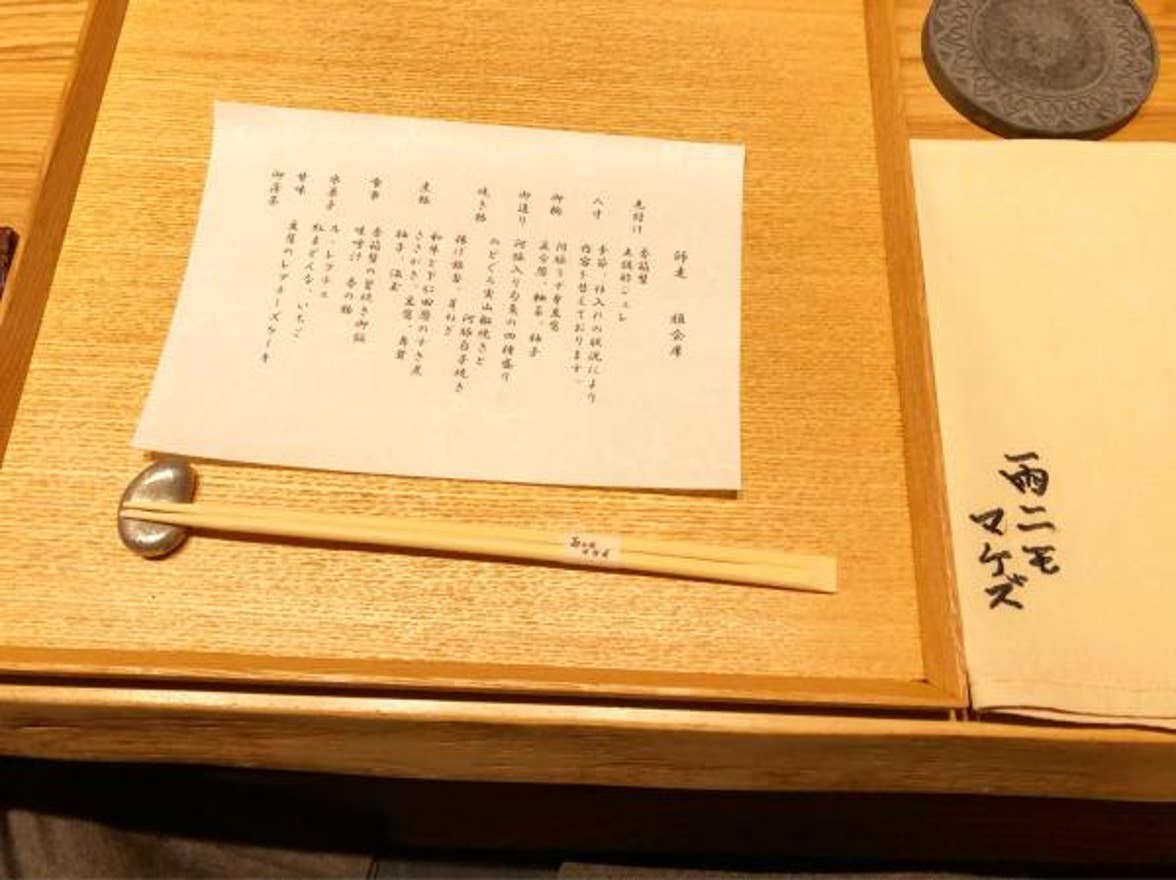 師走 短会席
先付け 香箱蟹
土佐酢ジュレ
八寸 季節、仕入れの状況により
内容を替えております。
御椀 河豚うす葛豆腐
御造り 河豚入り旬魚の四種盛り
焼き物 のどぐろ杉山椒焼きと
河豚白子焼き
揚げ銀杏
煮物 和牛と下仁田葱のすき煮
ささがき、豆腐、舞茸
柚子、温玉
食事 香箱蟹の釜焼き御飯
味噌汁 香の物
水菓子 ル・レクチェ
紅まどんな、いちご
甘味 豆腐のレアチーズケーキ
御薄茶
雨ニモ
マケズ